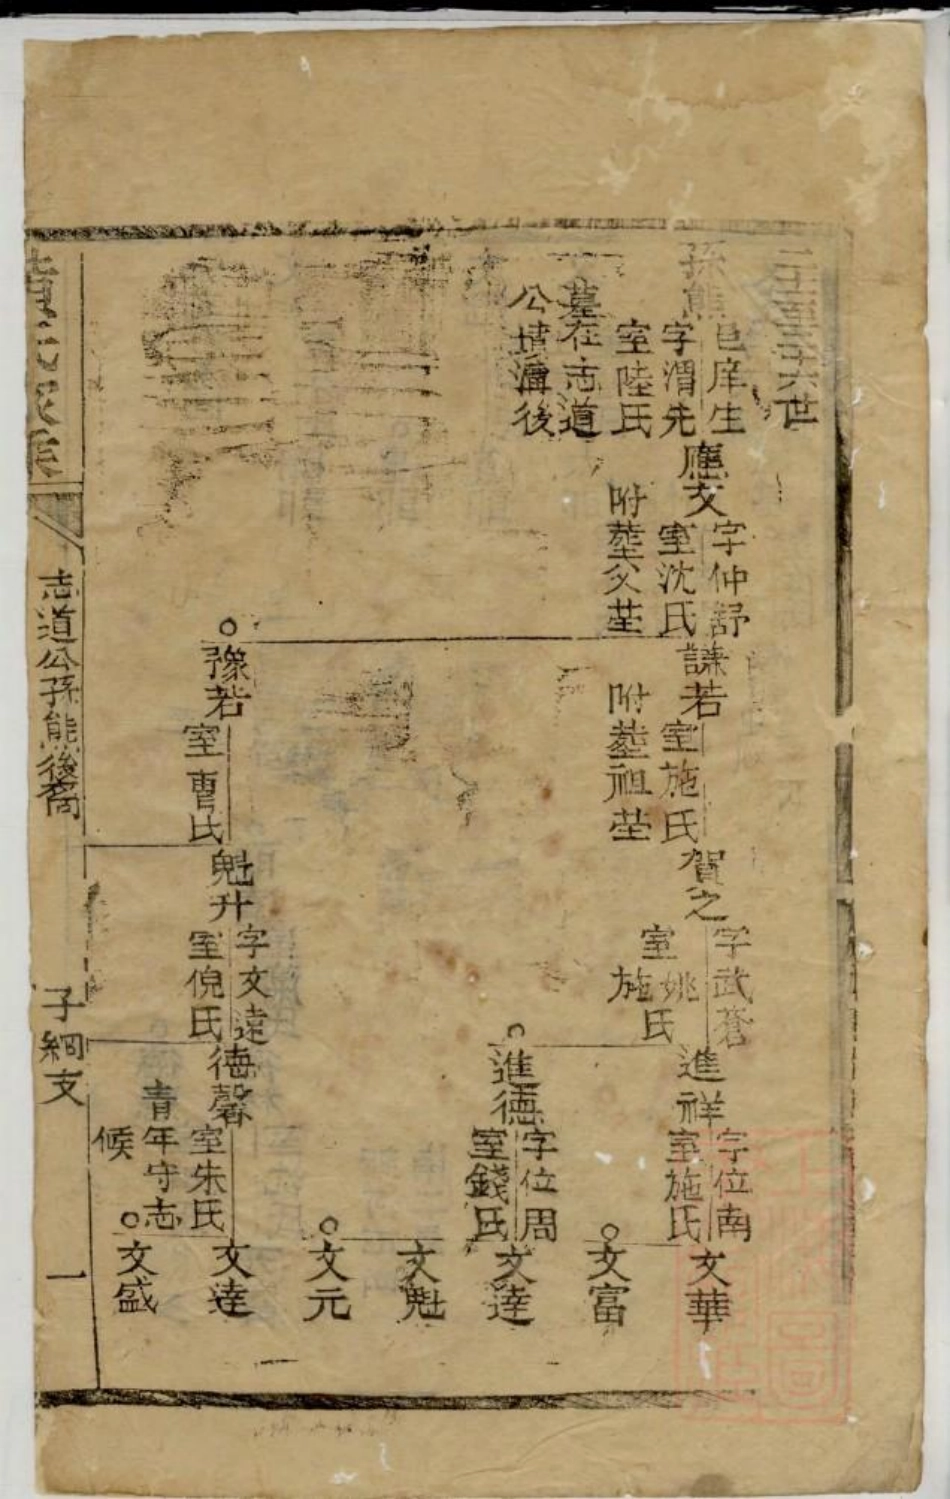 世
孫熊
邑庠生
字渭先
室陸氏
墓在志道
公墳溝後
應文
字仲舒
室沈氏
附塟父茔
謙若
室施氏
附塟祖茔
賀之
字武蒼
室姚氏
施
進祥
字位南
室施氏
文華
○文富
○進德
字位周
室錢氏
文達
文魁
○文元
○豫若
室曹氏
魁升
字文遠
室倪氏
德馨
室朱氏
青年守志
候
文達
○文盛
志道公孫熊後裔
子綱支
一